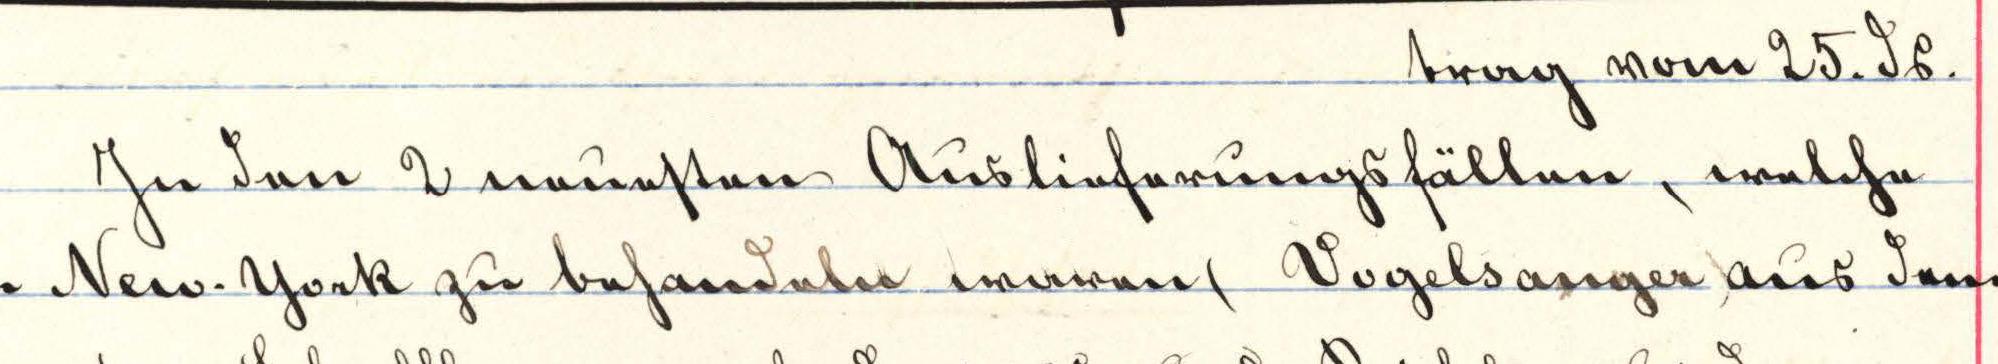 trag vom 25. ds.
In den 2 neuesten Auslieferungsfällen, welche
New-York zu behandeln waren (Vogelsanger aus dem